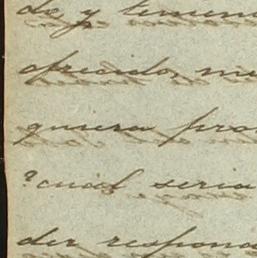 do, y tenem
ofrecidos, me
quiera pro
?cuál seria
der respond